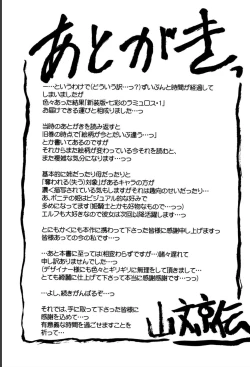 あとがきっ
……というわけで(どういう訳…っ?)ずいぶんと時間が経過して
しまいましたが
色々あった結果「新装版・七彩のラミュロス・1」
お届けできる運びと相成りました…っ
当時のあとがきを読み返すと
旧巻の時点で「絵柄が今とだいぶ違う…っ」
とか書いてあるのですが
それからまた絵柄が変わっている今それを読むと、
また複雑な気分になります…っっ
基本的に姫だったり母だったりと
「奪われる(失う)対象」があるキャラの方が
濃く描写されている気もしますがそれは趣向のせいだったり…
あ、ポニテの姫はビジュアル的な好みで
多めになってます(姫騎士とかも好物なもので…っっ)
エルフも大好きなので彼女は次回以降活躍します…っ
とにもかくにも本作に携わって下さった皆様に感謝申し上げますっ
皆様あっての今の私です…っ
…あと本書に至っては相変わらずですが…諸々遅れて
申し訳ありませんでした…っ
(デザイナー様にも色々とギリギリに無理をして頂きまして…
とても綺麗に仕上げて下さって本当に感謝感謝です…っっ)
…よし、続きがんばるぞ…っ
それでは、手に取って下さった皆様に
感謝を込めて…っ
有意義な時間を過ごせますことを
祈って…
山文京伝